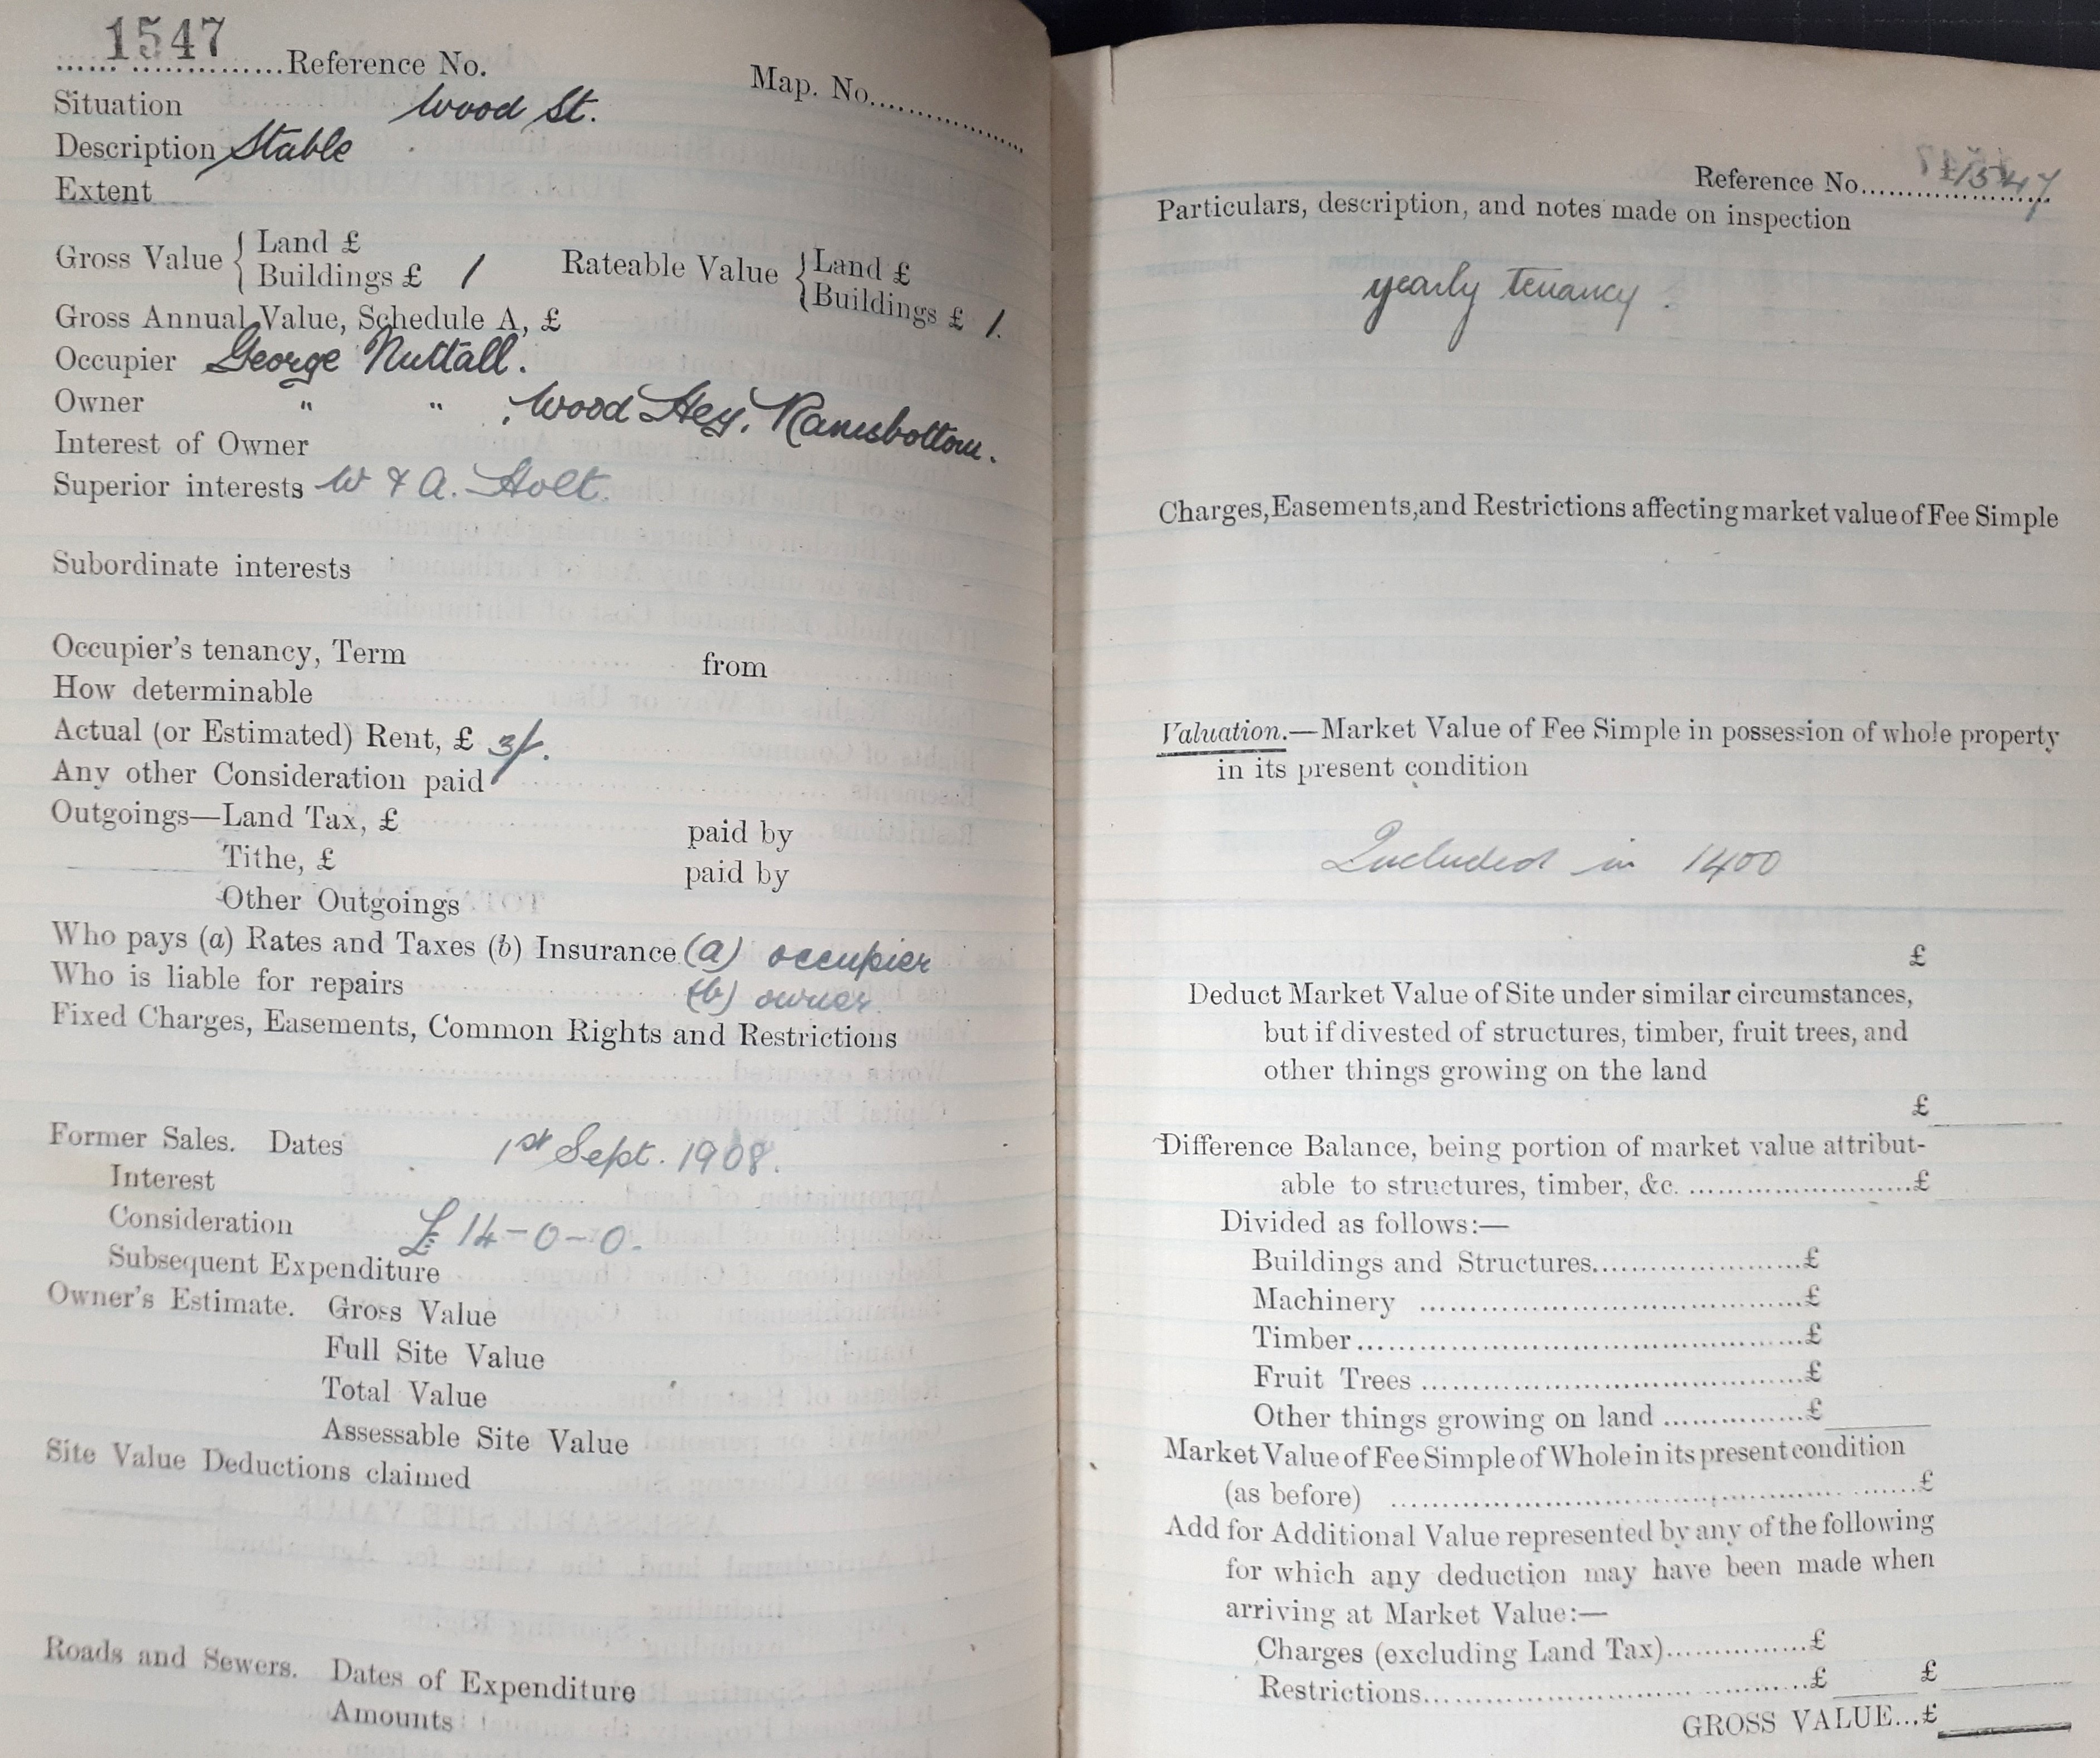 1547
...... ...............Reference No.
Map. No..................
Situation Wood St.
Description Stable
Extent
Gross Value { Land £
Buildings £ 1
Rateable Value { Land £
Buildings £ 1.
Gross Annual Value, Schedule A, £
Occupier George Nuttall.
Owner " " , Wood Hey, Ramsbottom.
Interest of Owner
Superior interests W & A. Holt.
Subordinate interests
Occupier's tenancy, Term from
How determinable
Actual (or Estimated) Rent, £ 3/.
Any other Consideration paid
Outgoings—Land Tax, £ paid by
Tithe, £ paid by
Other Outgoings
Who pays (a) Rates and Taxes (b) Insurance (a) occupier
Who is liable for repairs (b) owner.
Fixed Charges, Easements, Common Rights and Restrictions
Former Sales. Dates 1st Sept. 1908.
Interest
Consideration £14-0-0.
Subsequent Expenditure
Owner's Estimate. Gross Value
Full Site Value
Total Value
Assessable Site Value
Site Value Deductions claimed
Roads and Sewers. Dates of Expenditure
Amounts
Reference No. 1547
Particulars, description, and notes made on inspection
yearly tenancy.
Charges, Easements, and Restrictions affecting market value of Fee Simple
Valuation.—Market Value of Fee Simple in possession of whole property
in its present condition
Included in 1400
£
Deduct Market Value of Site under similar circumstances,
but if divested of structures, timber, fruit trees, and
other things growing on the land
£
Difference Balance, being portion of market value attribut-
able to structures, timber, &c. ...........................£
Divided as follows:—
Buildings and Structures.......................£
Machinery .......................................£
Timber...............................................£
Fruit Trees ........................................£
Other things growing on land ...............£
Market Value of Fee Simple of Whole in its present condition
(as before) ......................................................£
Add for Additional Value represented by any of the following
for which any deduction may have been made when
arriving at Market Value:—
Charges (excluding Land Tax)...............£
Restrictions.........................................£ £
GROSS VALUE...£